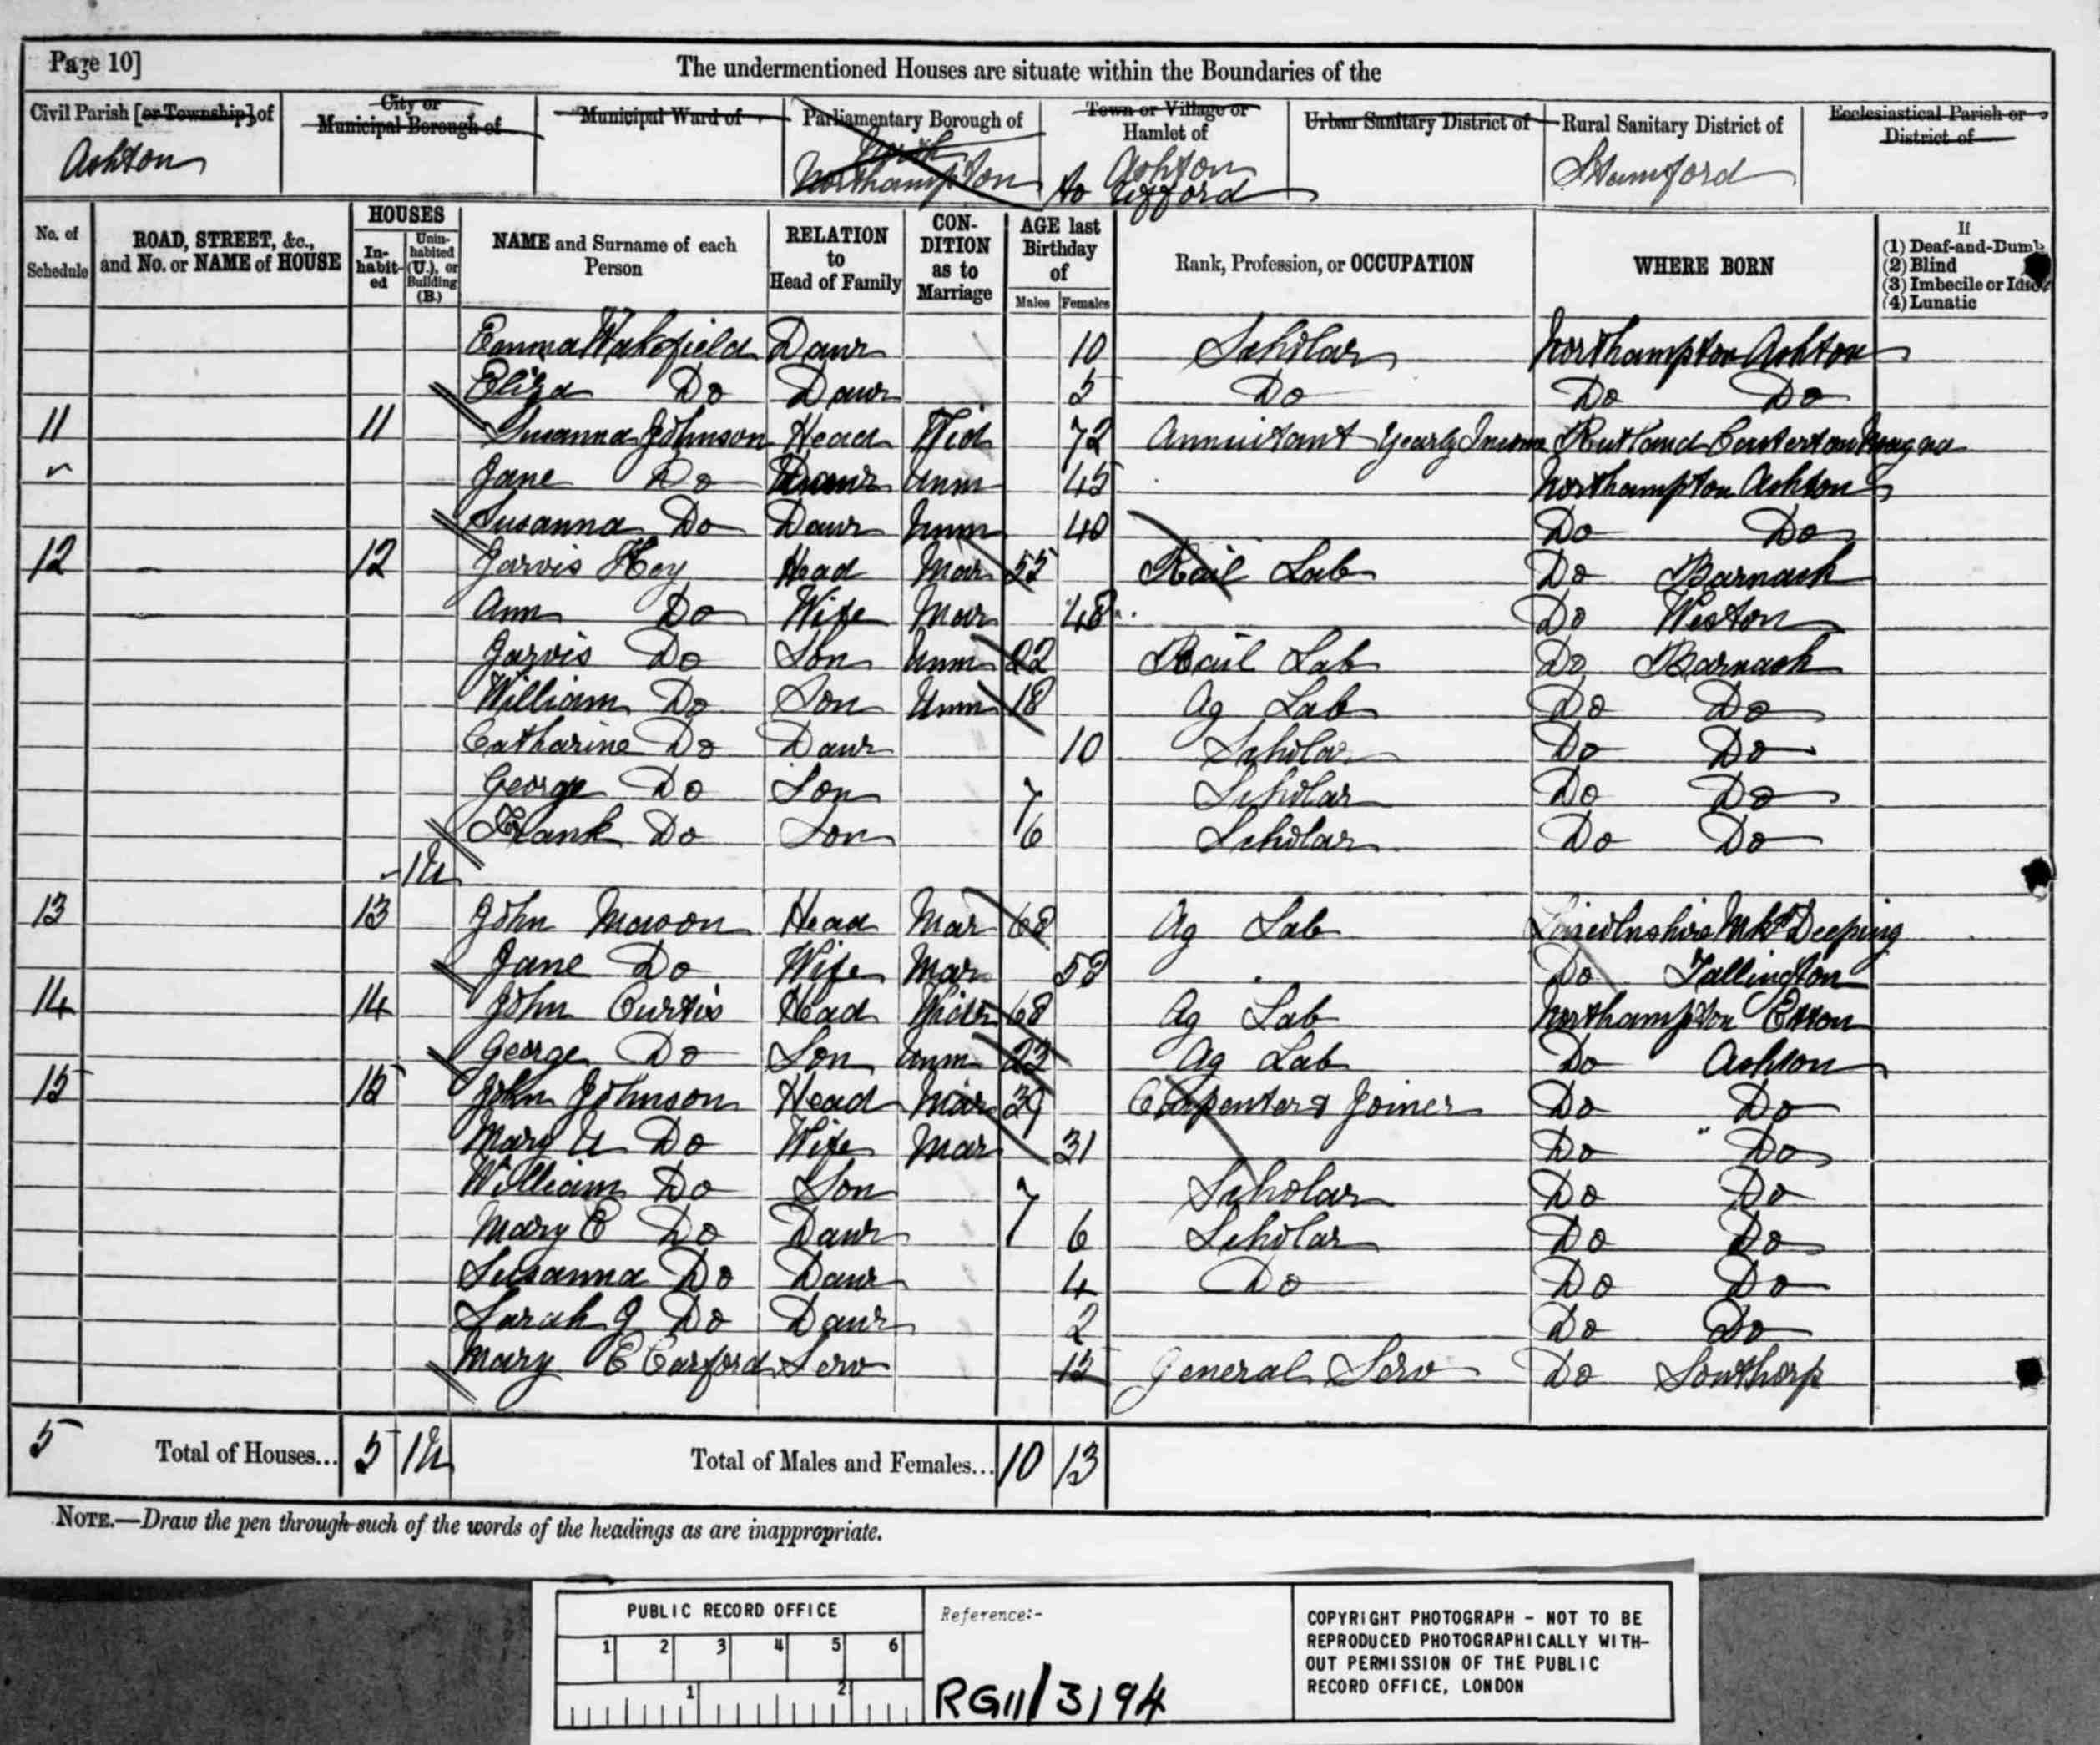 Page 10]
The undermentioned Houses are situate within the Boundaries of the
Civil Parish [or Township] of
Ashton
City or
Municipal Borough of
Municipal Ward of
Parliamentary Borough of
Northampton
Town or Village or
Hamlet of
Ashton
to Ufford
Urban Sanitary District of
Rural Sanitary District of
Stamford
Ecclesiastical Parish or
District of
No. of
Schedule
ROAD, STREET, &c.,
and No. or NAME of HOUSE
HOUSES
In-
habit-
ed
Unin-
habited
(U.), or
Building
(B.)
NAME and Surname of each
Person
RELATION
to
Head of Family
CON-
DITION
as to
Marriage
AGE last
Birthday
of
Males Females
Rank, Profession, or OCCUPATION
WHERE BORN
If
(1) Deaf-and-Dumb
(2) Blind
(3) Imbecile or Idiot
(4) Lunatic
Emma Wakefield Daur 10 Scholar Northampton Ashton
Eliza Do Daur 5 Do Do Do
11 11 Susanna Johnson Head Wid 72 Annuitant Yearly Income Rutland Casterton Magna
Jane Do Daur Unm 45 Northampton Ashton
Susanna Do Daur Unm 40 Do Do
12 12 Jarvis Hoy Head Mar 55 Rail Lab Do Barnack
Ann Do Wife Mar 48 Do Weston
Jarvis Do Son Unm 22 Rail Lab Do Barnack
William Do Son Unm 18 Ag Lab Do Do
Catharine Do Daur 10 Scholar Do Do
George Do Son 7 Scholar Do Do
Frank Do Son 6 Scholar Do Do
1U
13 13 John Mawon Head Mar 68 Ag Lab Lincolnshire Mkt Deeping
Jane Do Wife Mar 58 Do Tallington
14 14 John Curtis Head Widr 68 Ag Lab Northampton Etton
George Do Son Unm 23 Ag Lab Do Ashton
15 15 John Johnson Head Mar 39 Carpenter & Joiner Do Do
Mary A Do Wife Mar 31 Do Do
William Do Son 7 Scholar Do Do
Mary E Do Daur 6 Scholar Do Do
Susanna Do Daur 4 Do Do Do
Sarah J Do Daur 2 Do Do
Mary E Carford Serv General Serv Do Southorp
5 Total of Houses... 5 1U Total of Males and Females... 10 13
NOTE.—Draw the pen through such of the words of the headings as are inappropriate.
PUBLIC RECORD OFFICE
1 2 3 4 5 6
1 2
Reference:-
RG11/3194
COPYRIGHT PHOTOGRAPH - NOT TO BE
REPRODUCED PHOTOGRAPHICALLY WITH-
OUT PERMISSION OF THE PUBLIC
RECORD OFFICE, LONDON